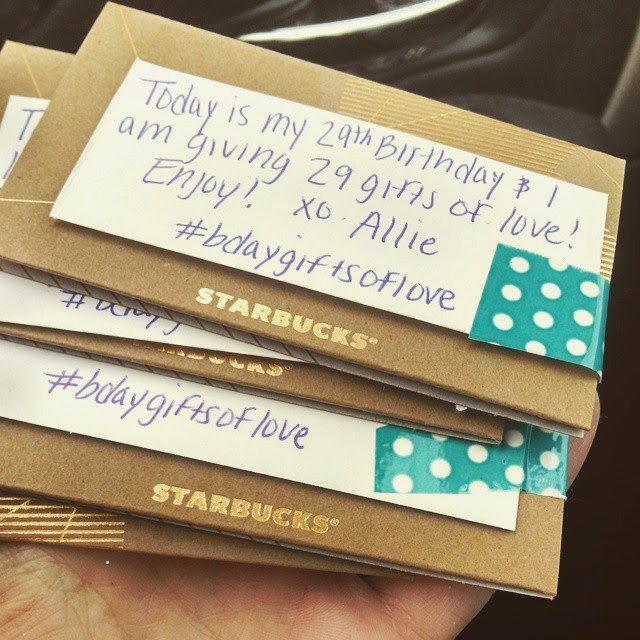 Today is my 29th Birthday & I
am giving 29 gifts of love!
Enjoy! xo. Allie
#bdaygiftsoflove
STARBUCKS®
STARBUCKS®
#bdaygiftsoflove
STARBUCKS®